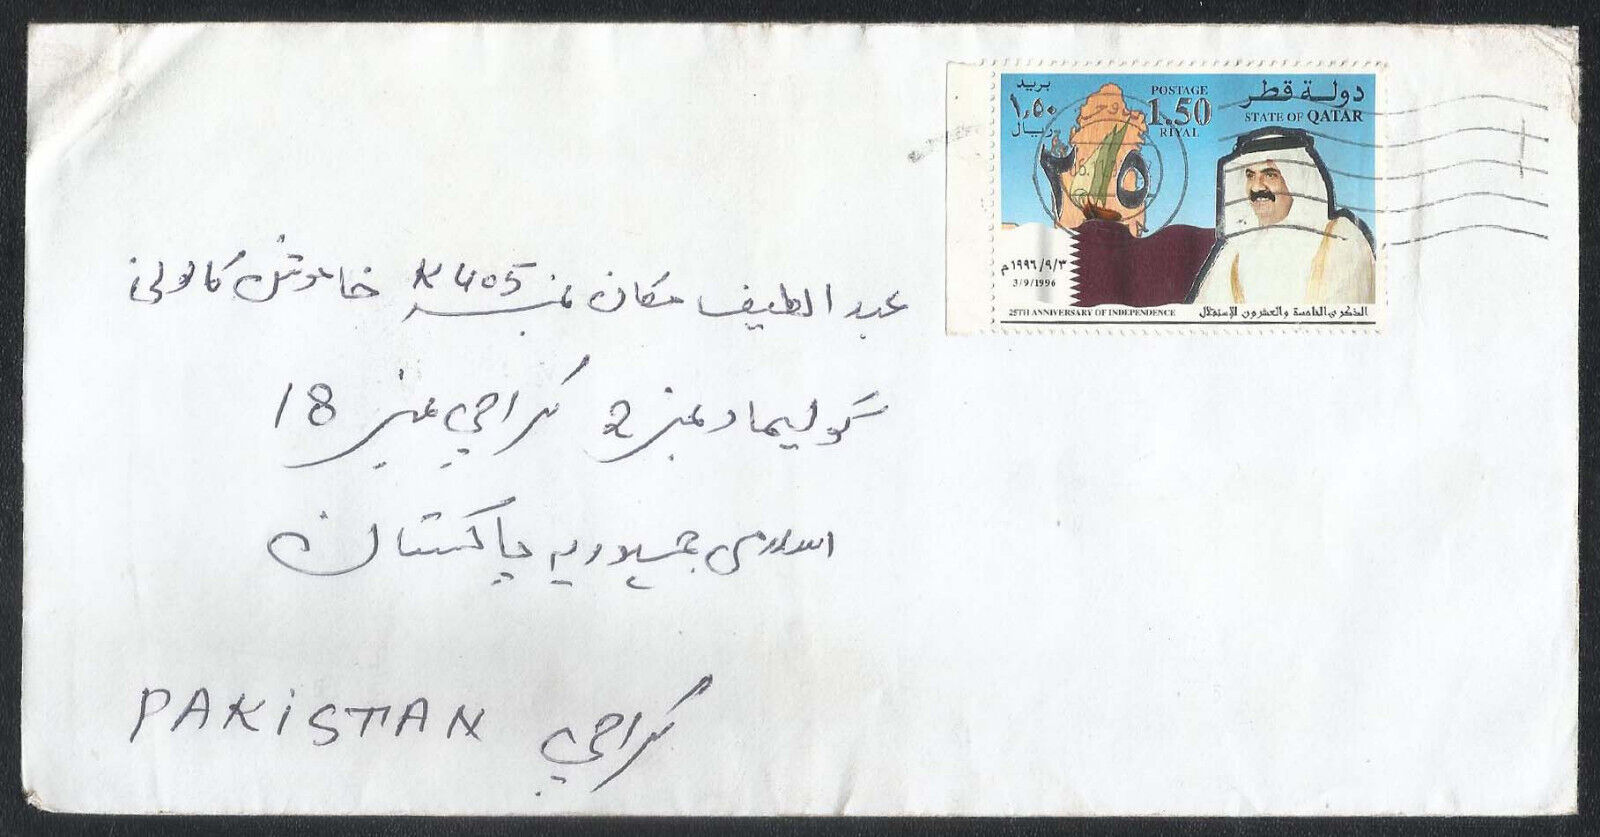 بريد
١٫٥٠
ريال
POSTAGE
1.50
RIYAL
دولة قطر
STATE OF QATAR
٢٥
١٩٩٦/٩/٣م
3/9/1996
25TH ANNIVERSARY OF INDEPENDENCE
الذكرى الخامسة والعشرون للإستقلال
عبد الطيف مكان نمبر K 405 خاموش کالونی
گولیمار نمبر 2 کراچی نمبر 18
اسلامی جمہوریہ پاکستان
PAKiSTAN کراچی